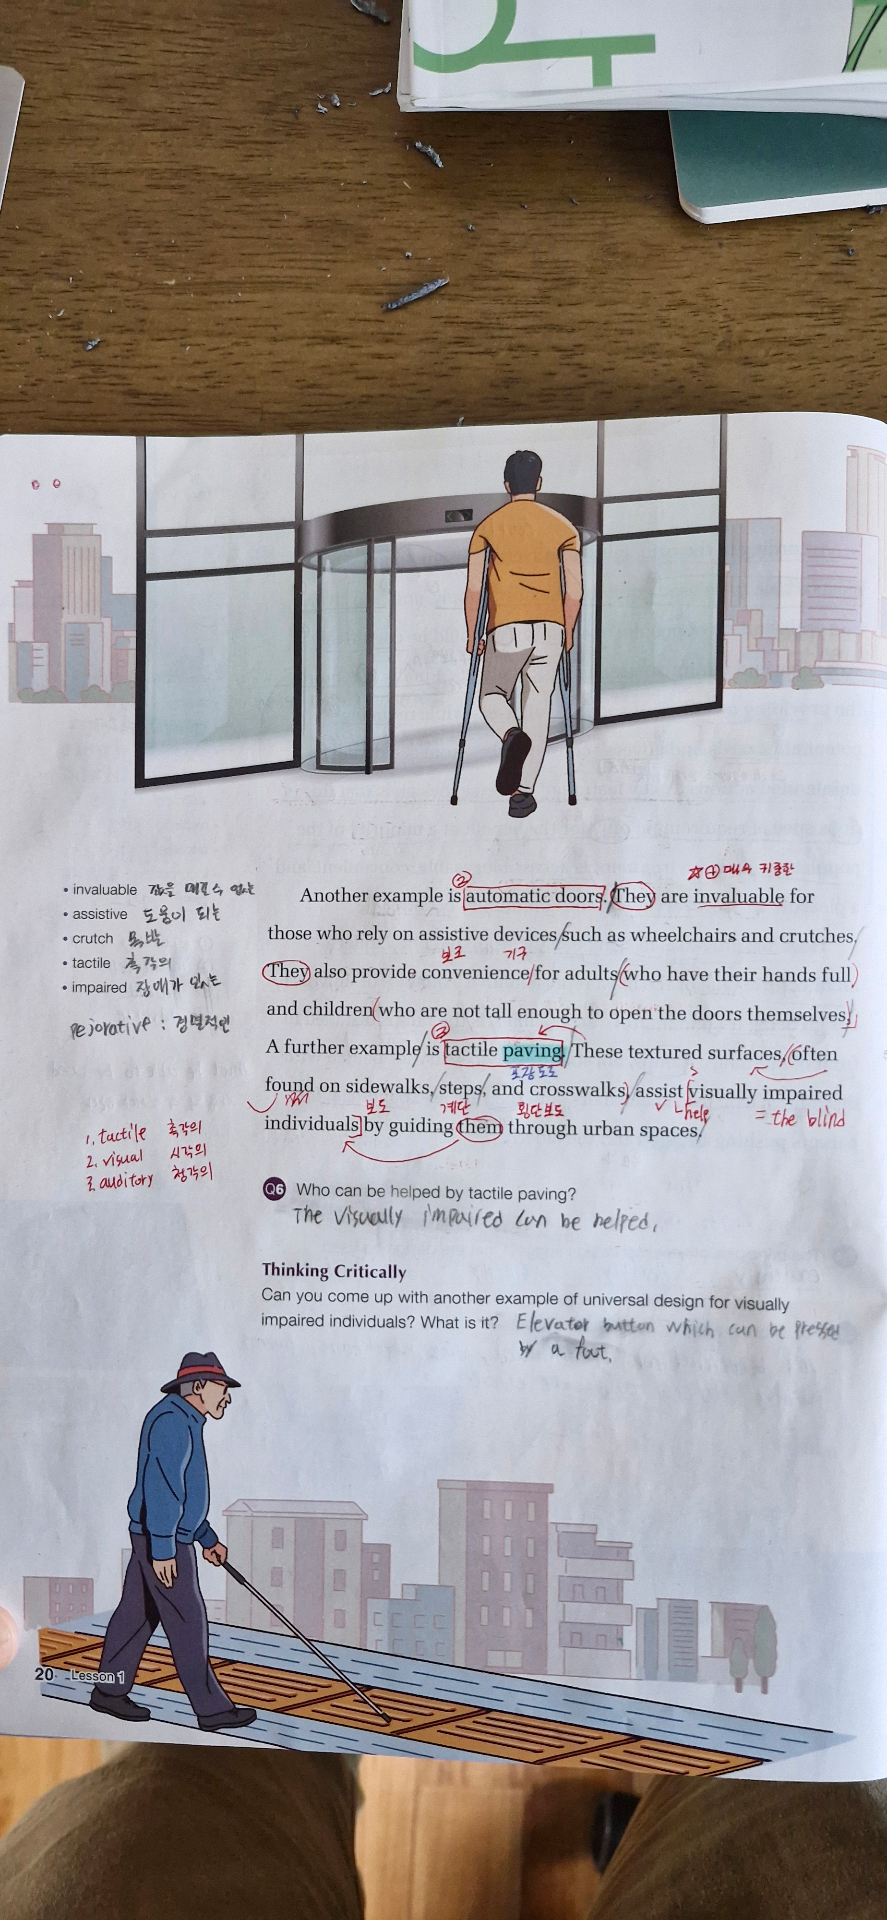 ② ☆⊕ 매우 귀중한
Another example is automatic doors. They are invaluable for
those who rely on assistive devices such as wheelchairs and crutches.
보조 기구
They also provide convenience for adults who have their hands full
and children who are not tall enough to open the doors themselves.
③
A further example is tactile paving. These textured surfaces, often
포장도로
found on sidewalks, steps, and crosswalks, assist visually impaired
보도 계단 횡단보도 help = the blind
individuals by guiding them through urban spaces.
• invaluable 값을 매길 수 없는
• assistive 도움이 되는
• crutch 목발
• tactile 촉각의
• impaired 장애가 있는
pejorative : 경멸적인
1. tactile 촉각의
2. visual 시각의
3. auditory 청각의
Q6 Who can be helped by tactile paving?
The visually impaired can be helped.
Thinking Critically
Can you come up with another example of universal design for visually
impaired individuals? What is it? Elevator button which can be pressed
by a foot.
20 Lesson 1